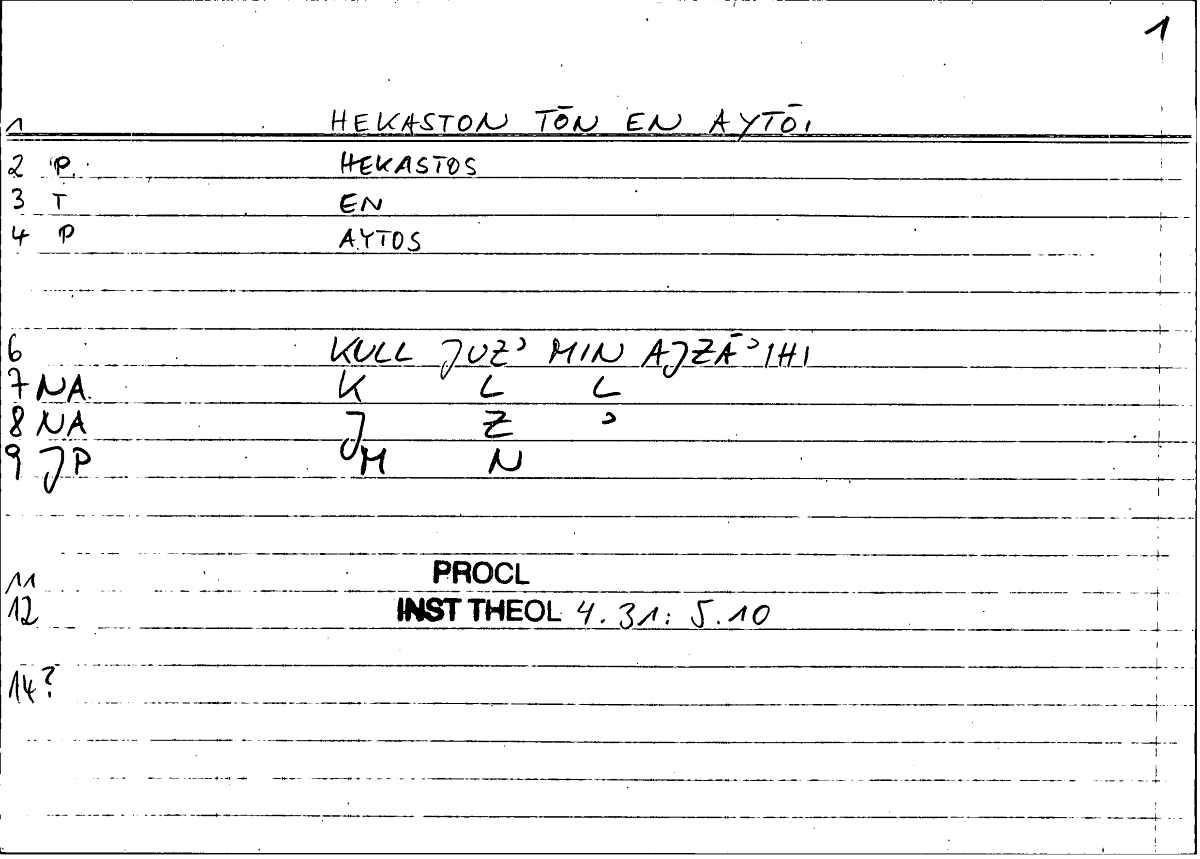 1
1 HEKASTON TŌN EN AYTŌI
2 P. HEKASTOS
3 T EN
4 P AYTOS
6 KULL JUZʾ MIN AJZĀʾIHI
7 NA K L L
8 NA J Z ʾ
9 JP M N
11 PROCL
12 INST THEOL 4.31: 5.10
14?